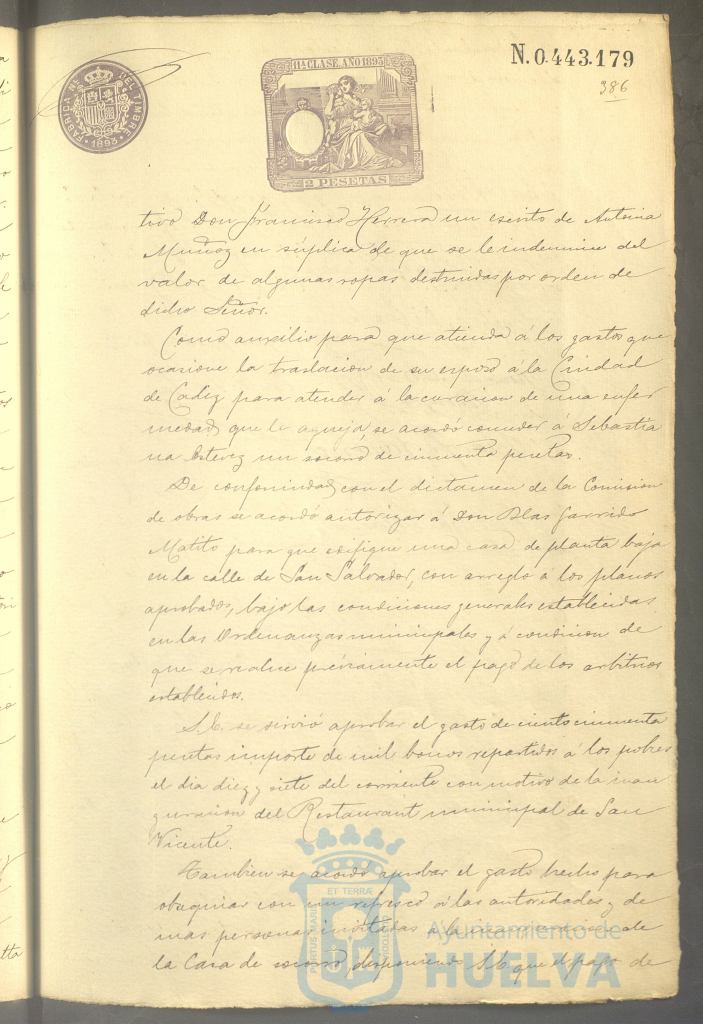 N.0.443.179
386
11ª CLASE. AÑO 1893
2 PESETAS
FÁBRICA NL. DEL TIMBRE
1893
tivo Don Francisco Herrera un escrito de Antonia
Muñoz en súplica de que se le indemnice del
valor de algunas ropas destruidas por orden de
dicho Señor.
Como auxilio para que atienda á los gastos que
ocasione la traslacion de su esposo á la Ciudad
de Cadiz para atender á la curacion de una enfer
medad que le aqueja, se acordó conceder á Sebastia
na Estevez un socorro de cincuenta pesetas.
De conformidad con el dictamen de la Comision
de obras se acordó autorizar á Don Blas Garrido
Matito para que edifique una casa de planta baja
en la calle de San Salvador, con arreglo á los planos
aprobados, bajo las condiciones generales establecidas
en las Ordenanzas municipales y á condicion de
que se realice préviamente el pago de los arbitrios
establecidos.
S.E. se sirvió aprobar el gasto de ciento cincuenta
pesetas importe de mil bonos repartidos á los pobres
el dia diez y siete del corriente con motivo de la inau
guracion del Restaurant municipal de San
Vicente.
Tambien se acordó aprobar el gasto hecho para
obsequiar con un refresco á las autoridades y de
mas personas invitadas á la inauguracion de
la Casa de socorro, disponiendo S.E. que el pago de
PORTUS MARIS
ET TERRÆ
CUSTODIA
Ayuntamiento de
HUELVA